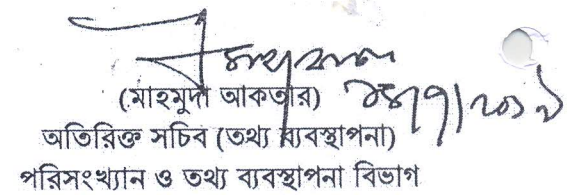 (মাহমুদা আকতার)
অতিরিক্ত সচিব (তথ্য ব্যবস্থাপনা)
পরিসংখ্যান ও তথ্য ব্যবস্থাপনা বিভাগ